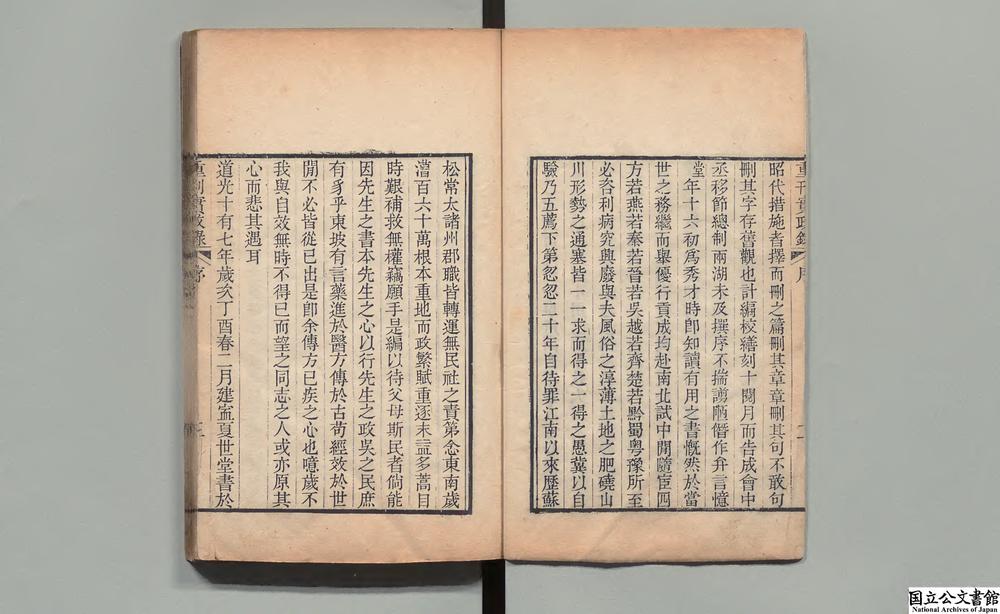 重刊實政錄
序
二
昭代措施者擇而刪之篇刪其章章刪其句不敢句
刪其字存舊觀也計編校繕刻十閱月而告成會中
丞移節總制兩湖未及撰序不揣謭陋僭作弁言憶
堂年十六初爲秀才時卽知讀有用之書慨然於當
世之務繼而舉優行貢成均赴南北試中閒隨宦四
方若燕若秦若晉若吳越若齊楚若黔蜀粵豫所至
必咨利病究興廢與夫風俗之淳薄土地之肥磽山
川形勢之通塞皆一一求而得之一得之愚冀以自
驗乃五薦下第忽忽二十年自待罪江南以來歷蘇
松常太諸州郡職皆轉運無民社之責第念東南歲
漕百六十萬根本重地而政繁賦重逐末益多蒿目
時艱補救無權竊願手是編以待父母斯民者倘能
因先生之書本先生之心以行先生之政吳之民庶
有豸乎東坡有言藥進於醫方傳於古苟經效於世
閒不必皆從已出是卽余傳方已疾之心也噫歲不
我與自效無時不得已而望之同志之人或亦原其
心而悲其遇耳
道光十有七年歲次丁酉春二月建寍夏世堂書於
重刊實政錄
序
三
国立公文書館
National Archives of Japan